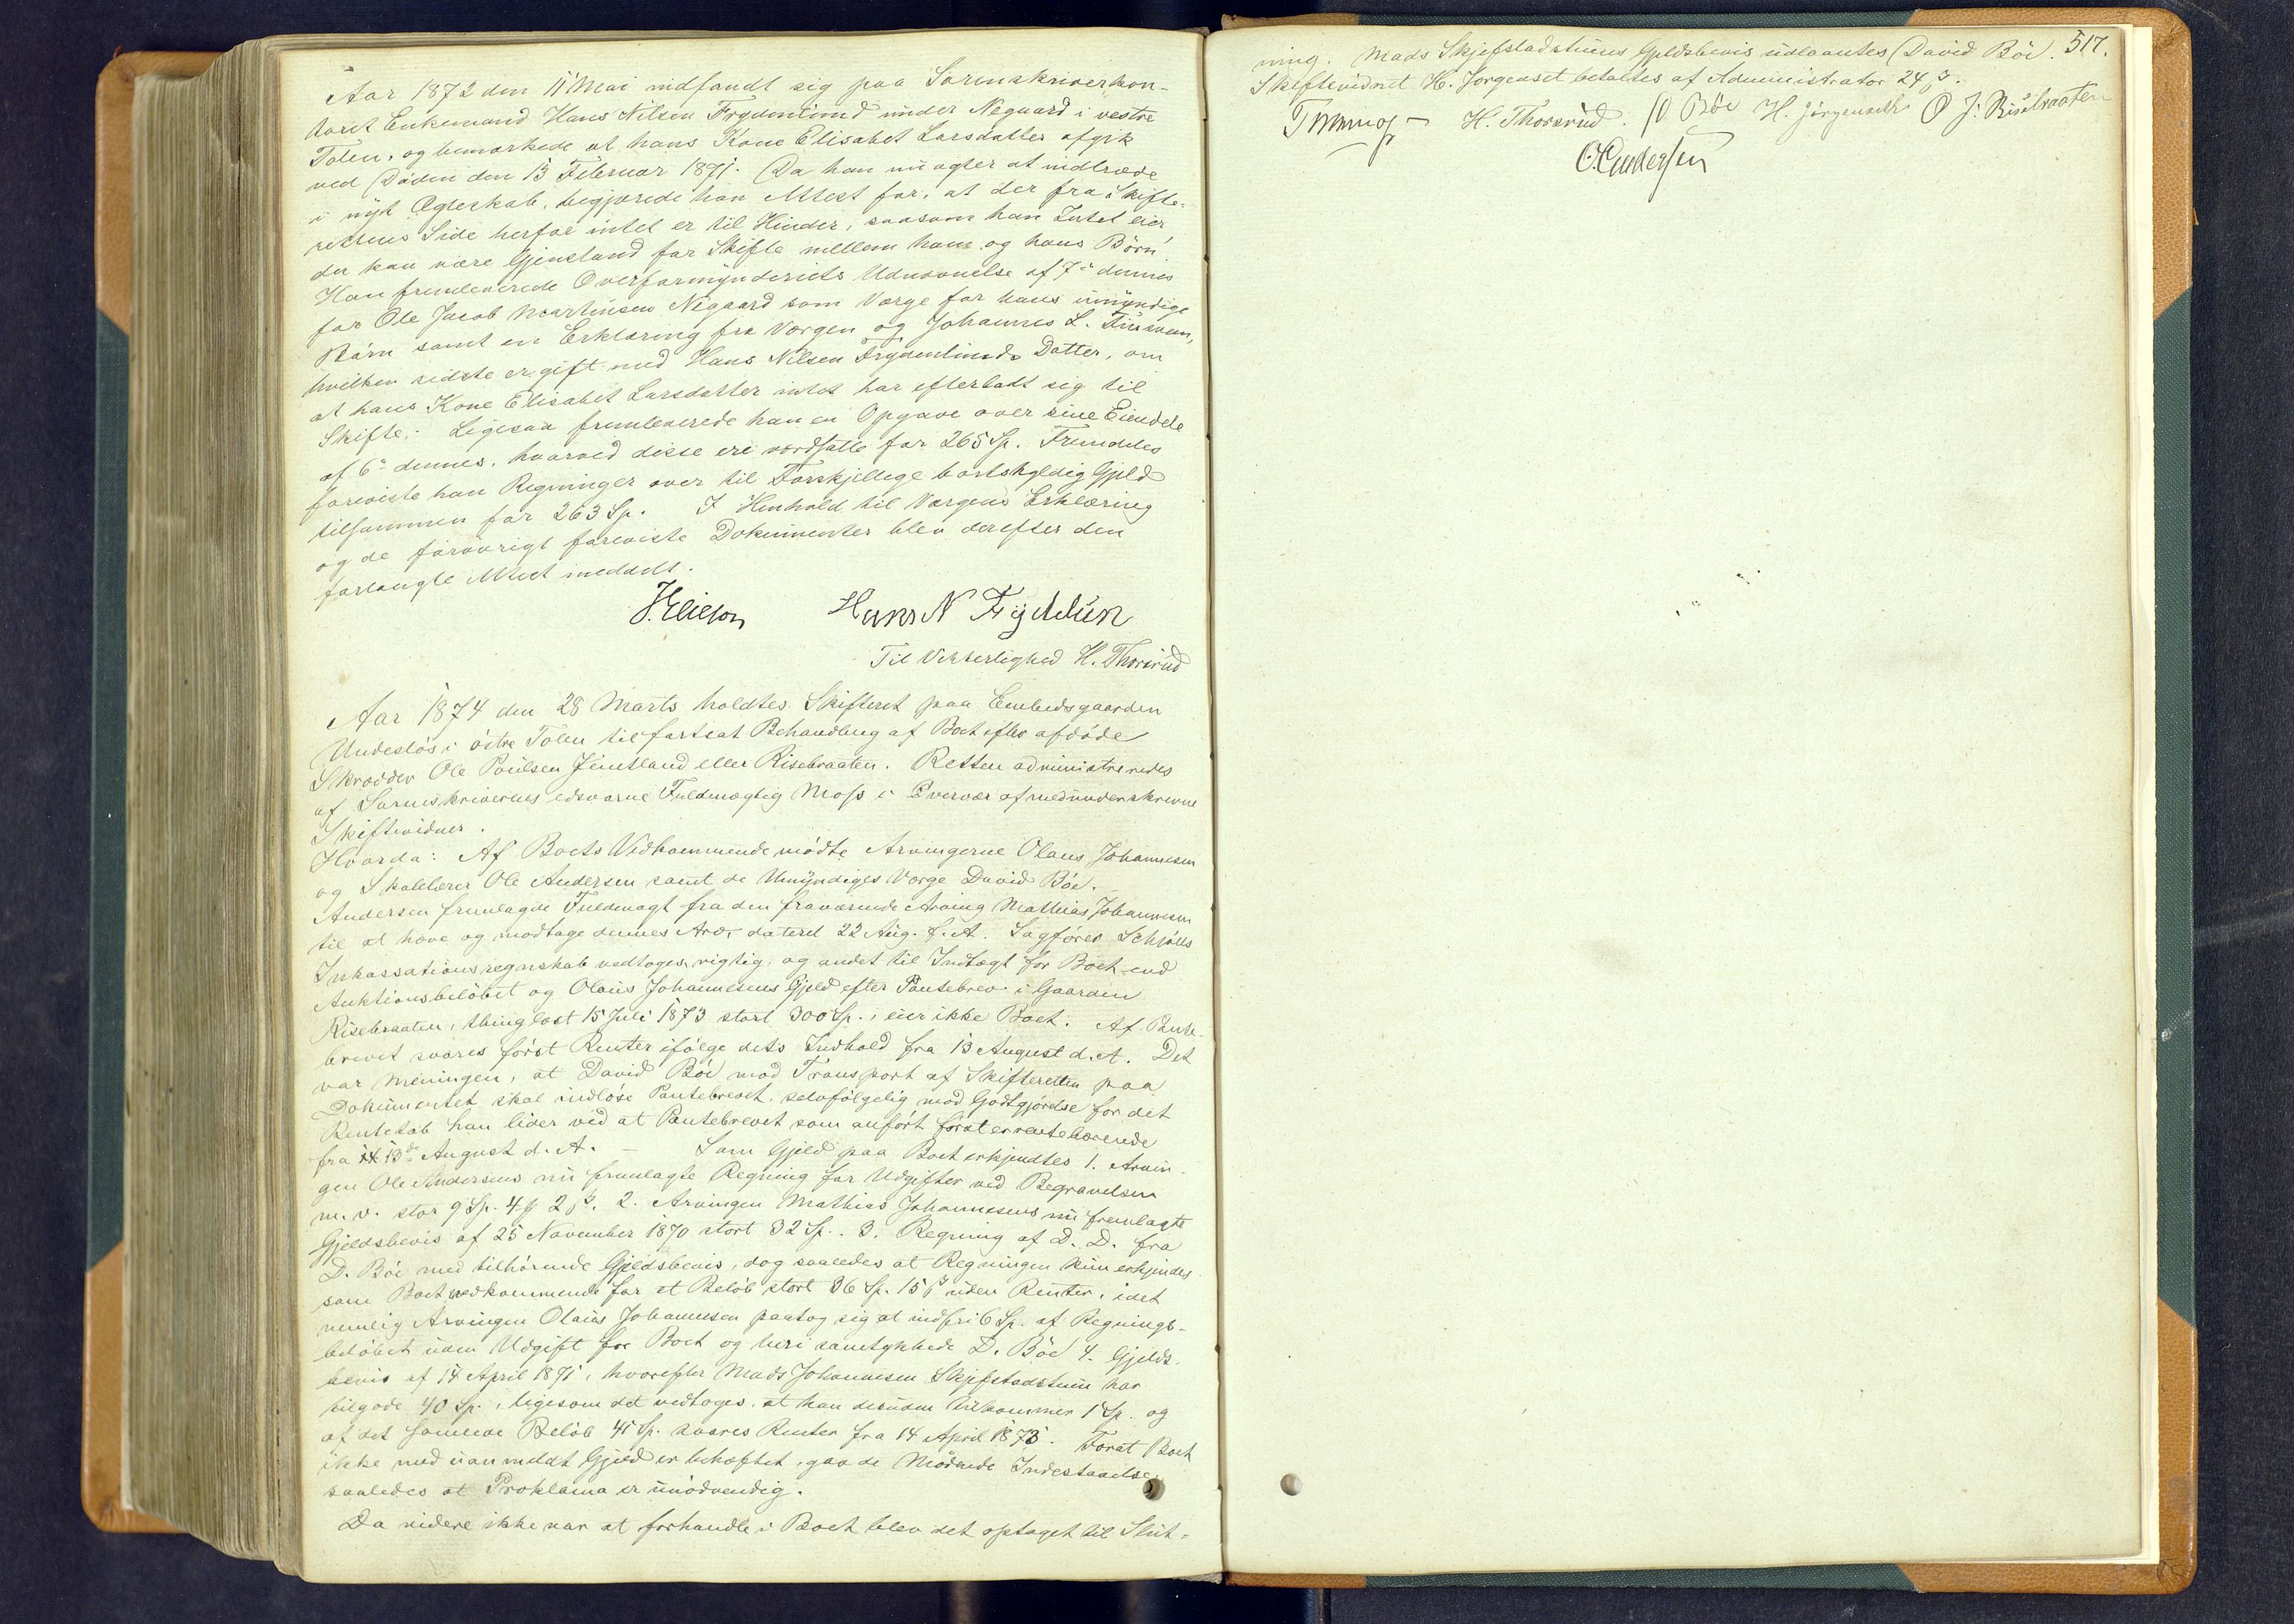 Aar 1872 den 11 Mai indfandt sig paa Sorenskriverkon-
toret Enkemand Hans Nilsen Frydenlund under Negaard i vestre
Toten, og bemærkede at hans Kone Elisabet Larsdatter afgik
ved Døden den 13 Februar 1871. Da han nu agter at indtræde
i nyt Ægteskab, begjærede han Attest for, at der fra Skifte-
rettens Side herfor intet er til Hinder, saasom han Intet eier
der kan være Gjenstand for Skifte mellem ham og hans Børn.
Han fremleverede Overformynderiets Udnævnelse af 7de dennes
for Ole Jacob Martinsen Negaard som Værge for hans umyndige
Børn samt en Erklæring fra Værgen og Johannes L.
hvilken sidste er gift med Hans Nilsen Frydenlunds Datter, om
at hans Kone Elisabet Larsdatter intet har efterladt sig til
Skifte. Ligesaa fremleverede han en Opgave over sine Eiendele
af 6te dennes, hvorved disse ere værdsatte for 265 Sp. Fremdeles
foreviste han Regninger over til Forskjellige bortskyldig Gjeld
tilsammen for 263 Sp. I Henhold til Værgens Erklæring
og de forøvrigt foreviste Dokumenter blev derefter den
forlangte Attest meddelt.
Hans N Frydelun
Til Vitterlighed H. Thorsrud
Aar 1874 den 28 Marts holdtes Skifteret paa Embedsgaarden
Undeslös i østre Toten til fortsat Behandling af Boet efter afdøde
Skrædder Ole Poulsen Jemtland eller Risebraaten. Retten administreredes
af Sorenskriverens edsvorne Fuldmægtig Moss i Overvær af medunderskrevne
Skiftevidner.
Hvorda: Af Boets Vedkommende mødte Arvingerne Olaus Johannesen
og Skolelærer Ole Andersen samt de Umyndiges Værge David Böe. –
Andersen fremlagde Fuldmagt fra den fraværende Arving Mathias Johannesen
til at hæve og modtage dennes Arv, dateret 22 Aug. f. A. Sagfører Schjølls
Inkassationsregnskab vedtoges rigtig, og andet til Indtægt for Boet end
Auktionsbeløbet og Olaus Johannesens Gjeld efter Pantebrev i Gaarden
Risebraaten, thinglæst 15 Juli 1873 stort 300 Sp., eier ikke Boet. Af Pante-
brevet svares først Renter ifølge dets Indhold fra 13 August d. A. Det
var Meningen, at David Böe mod Transport af Skifteretten paa
Dokumentet skal indløse Pantebrevet, selvfølgelig mod Godtgjørelse for det
Rentetab han lider ved at Pantebrevet som anført først er rentebærende
fra 14 13de August d. A. – Som Gjeld paa Boet erkjendtes 1. Arvin-
gen Ole Andersens nu fremlagte Regning for Udgifter ved Begravelsen
m. v. stor 9 Sp. 4 ₰ 2 ß. 2. Arvingen Mathias Johannesens nu fremlagte
Gjeldsbevis af 25 November 1870 stort 32 Sp. 3. Regning af D. D. fra
D. Böe med tilhørende Gjeldsbevis, dog saaledes at Regningen kun erkjendes
som Boet vedkommende for et Beløb stort 36 Sp. 15 ß uden Renter, idet
nemlig Arvingen Olaus Johannesen paatog sig at indfri 6 Sp. af Regnings-
beløbet uden Udgift for Boet og heri samtykkede D. Böe 4. Gjelds-
bevis af 14 April 1871, hvorefter Mads Johannesen Skjefstadstuen har
tilgode 40 Sp., ligesom det vedtoges, at han desuden tilkommer 1 Sp. og
af det samlede Beløb 41 Sp. svares Renter fra 14 April 1873. Forat Boet
ikke med uanmeldt Gjeld er behæftet, gav de Mødende Indestaaelse,
saaledes at Proklama er unødvendig.
Da videre ikke var at forhandle i Boet blev det optaget til Slut-
517.
ning. Mads Skjefstadstuens Gjeldsbevis udlaantes David Böe.
Skiftevidnet H. Jørgenset betaltes af Administrator 24 ß.
H. Thorsrud. D Böe H. Jörgenseth O J: Risebraaten
O. Andersen